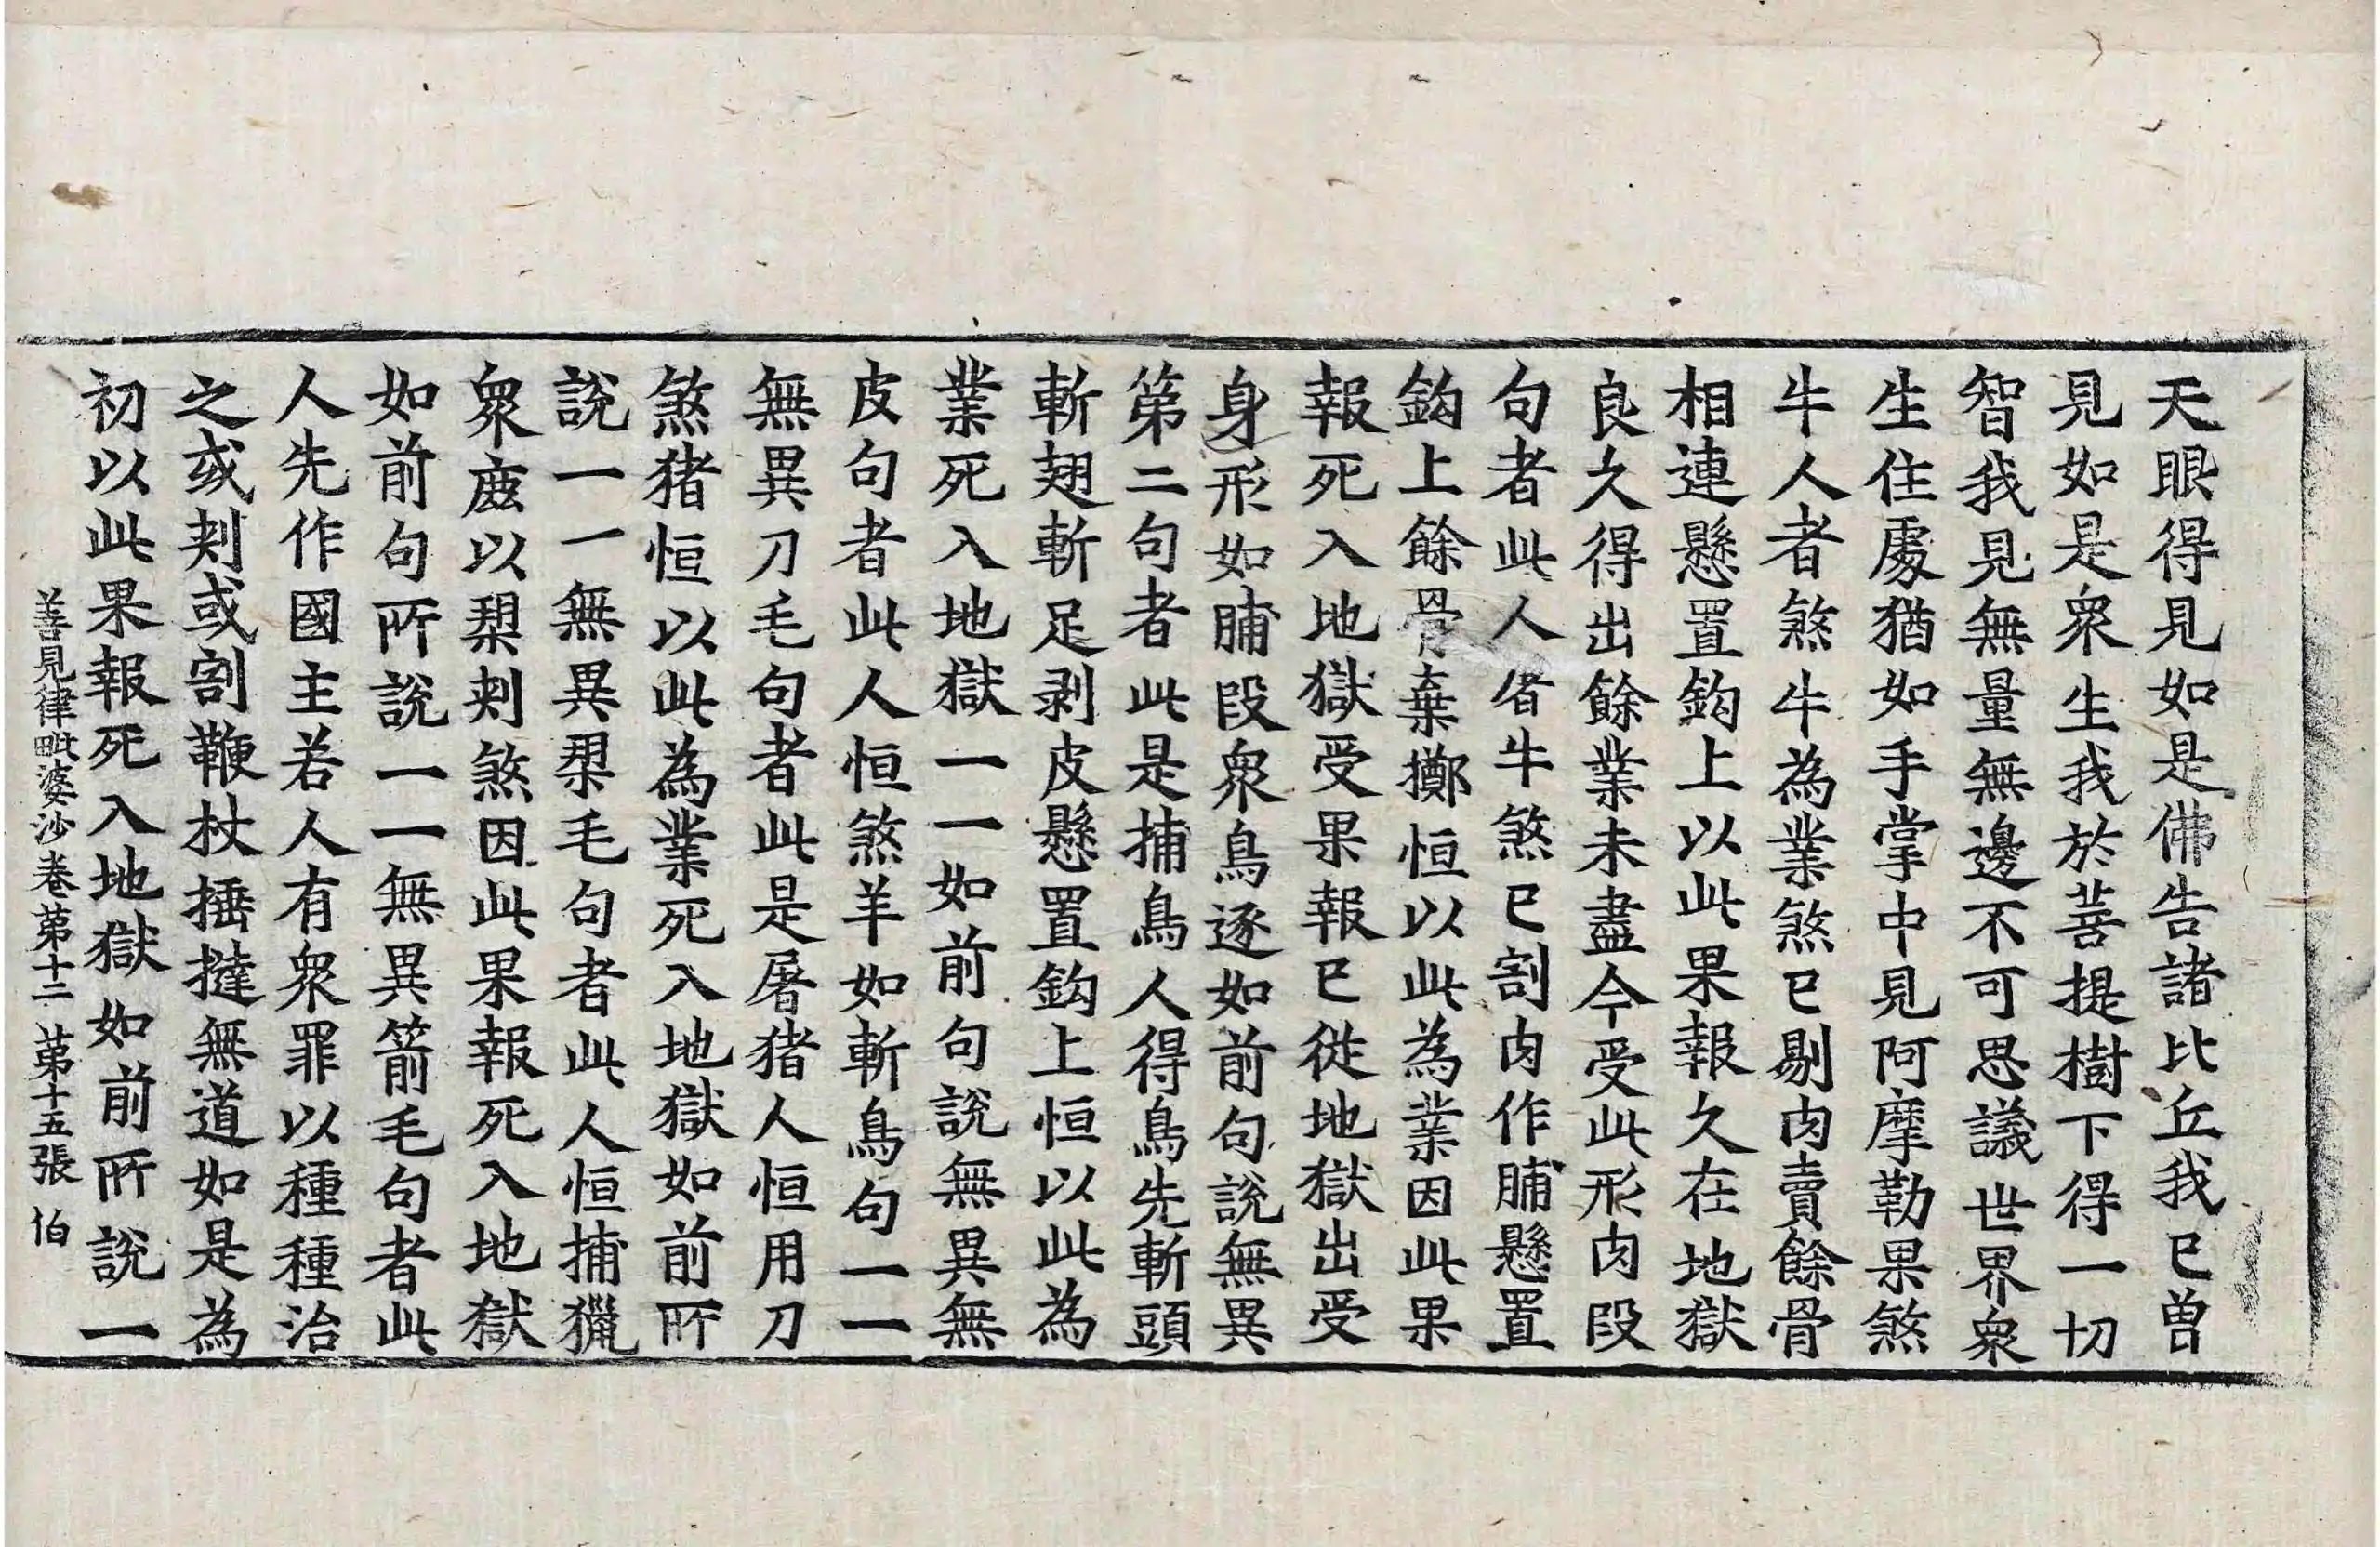 天眼得見如是佛告諸比丘我已曽
見如是衆生我於菩提樹下得一切
智我見無量無邊不可思議世界衆
生住處猶如手掌中見阿摩勒果煞
牛人者煞牛為業煞已剔肉賣餘骨
相連懸置鈎上以此果報久在地獄
良久得出餘業未盡今受此形肉段
句者此人省牛煞已割肉作脯懸置
鈎上餘骨棄擲恒以此為業因此果
報死入地獄受果報已從地獄出受
身形如脯段衆鳥逐如前句說無異
第二句者此是捕鳥人得鳥先斬頭
斬翅斬足剥皮懸置鈎上恒以此為
業死入地獄一一如前句說無異無
皮句者此人恒煞羊如斬鳥句一一
無異刀毛句者此是屠猪人恒用刀
煞猪恒以此為業死入地獄如前所
說一一無異槊毛句者此人恒捕獵
衆鹿以槊刾煞因此果報死入地獄
如前句所說一一無異箭毛句者此
人先作國主若人有衆罪以種種治
之或刾或割鞭杖捶撻無道如是為
初以此果報死入地獄如前所說一
善見律毗婆沙卷第十二 第十五張 伯